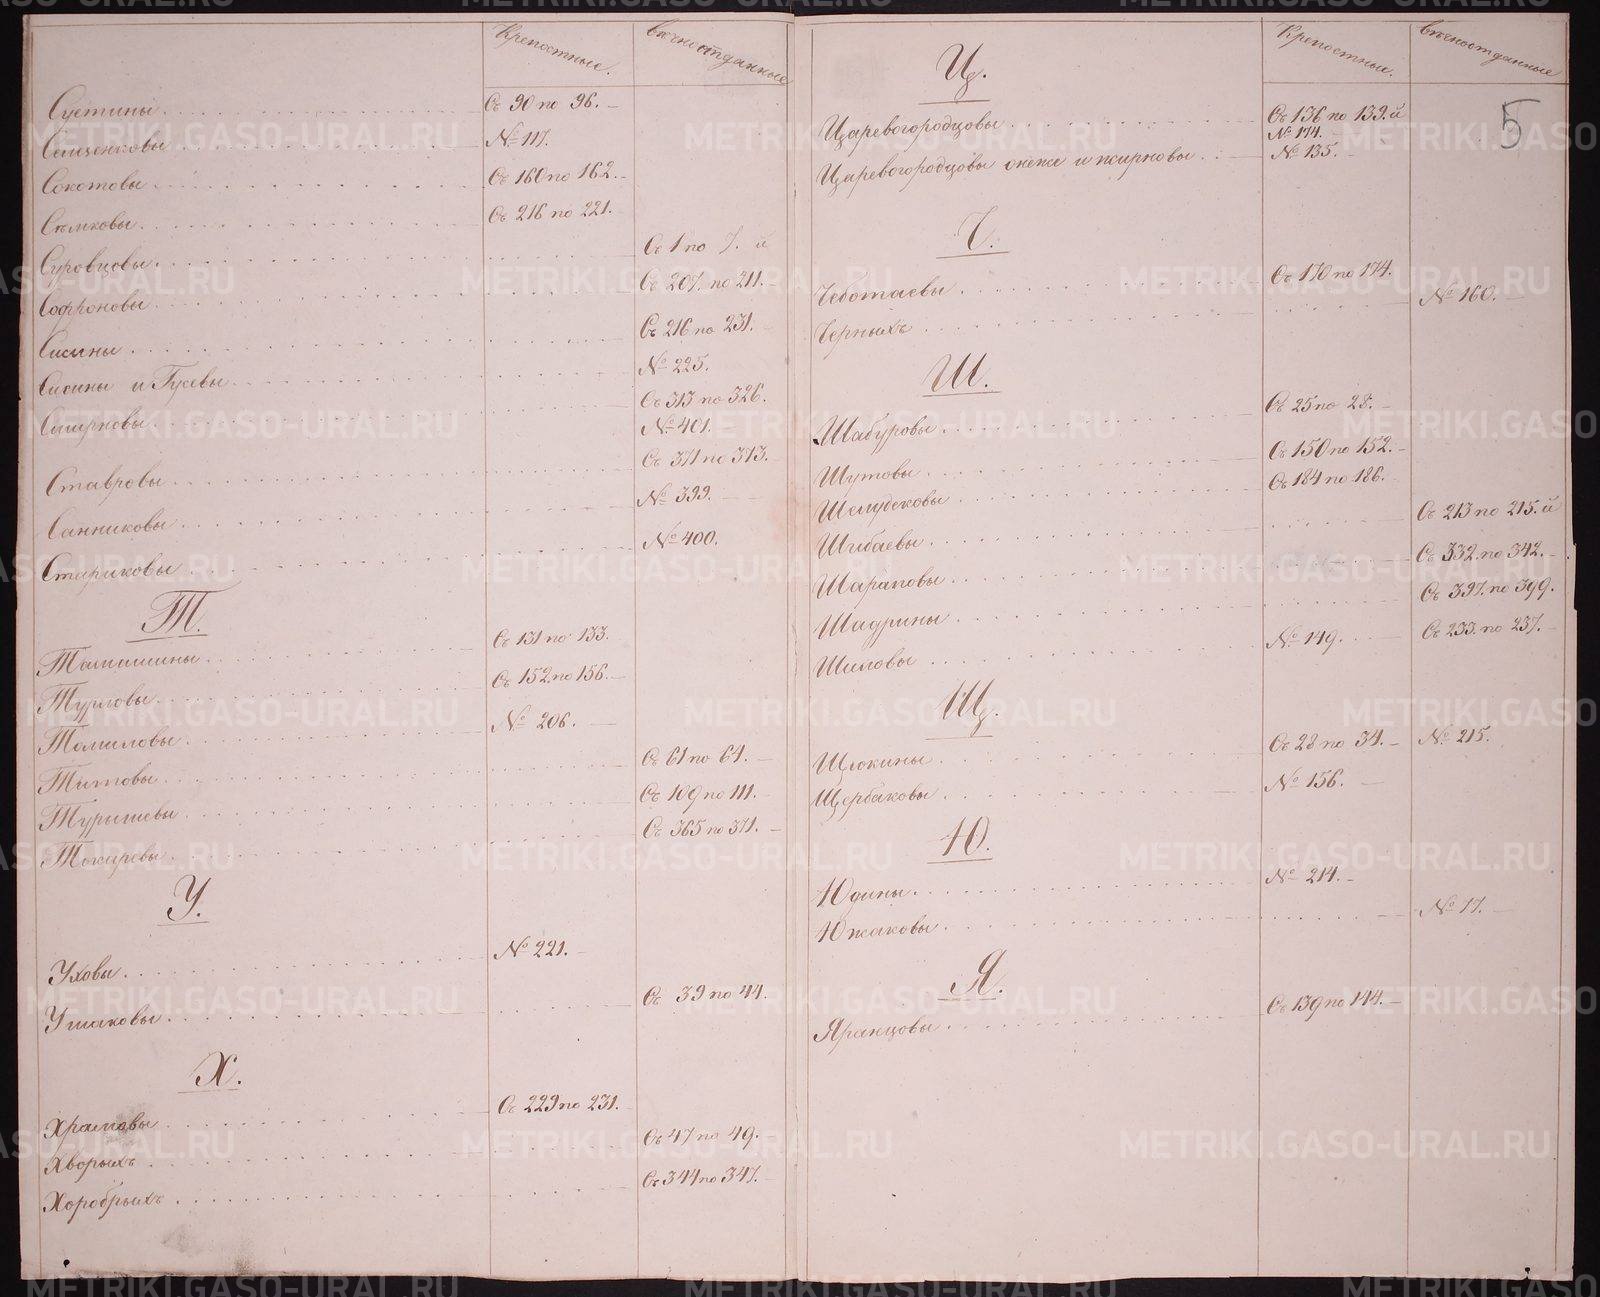 Крепостные. вѣчноотданные
Суетины Съ 90 по 96.
Сащенковы № 117.
Сокотовы Съ 160 по 162.
Сѣмковы Съ 216 по 221.
Суровцовы Съ 1 по 7. й
Софроновы Съ 207. по 211.
Сисины Съ 216 по 231.
Сисины и Гусевы № 225.
Смирновы Съ 313 по 326.
№ 401.
Ставровы Съ 371 по 373.
Санниковы № 399.
Стариковы № 400.
Т.
Томишины Съ 131 по 133.
Турловы Съ 152. по 156.
Томиловы № 206.
Титовы Съ 61 по 64.
Турышевы Съ 109 по 111.
Токаревы Съ 365 по 371.
У.
Уховы № 221.
Ушаковы Съ 39 по 44.
Х.
Храмовы Съ 229 по 231.
Хворыхъ Съ 47 по 49.
Хоробрыхъ Съ 344 по 347.
Крепостные. вѣчноотданные
5
Ц.
Царевогородцовы Съ 136 по 139. й
№ 174.
Царевогородцовы онеже и жирновы № 135.
Ч.
Чеботаевы Съ 170 по 174.
Черныхъ № 160.
Ш.
Шабуровы Съ 25 по 28.
Шутовы Съ 150 по 152.
Шелудковы Съ 184 по 186.
Шибаевы Съ 213 по 215. й
Шараповы Съ 332. по 342.
Шадрины Съ 397. по 399.
Шиловы № 149. Съ 233. по 237.
Щ.
Щокины Съ 28 по 34. № 215.
Щербаковы № 156.
Ю.
Юдины № 214.
Южаковы № 17.
Я.
Яранцовы Съ 139 по 144.
METRIKI.GASO-URAL.RU